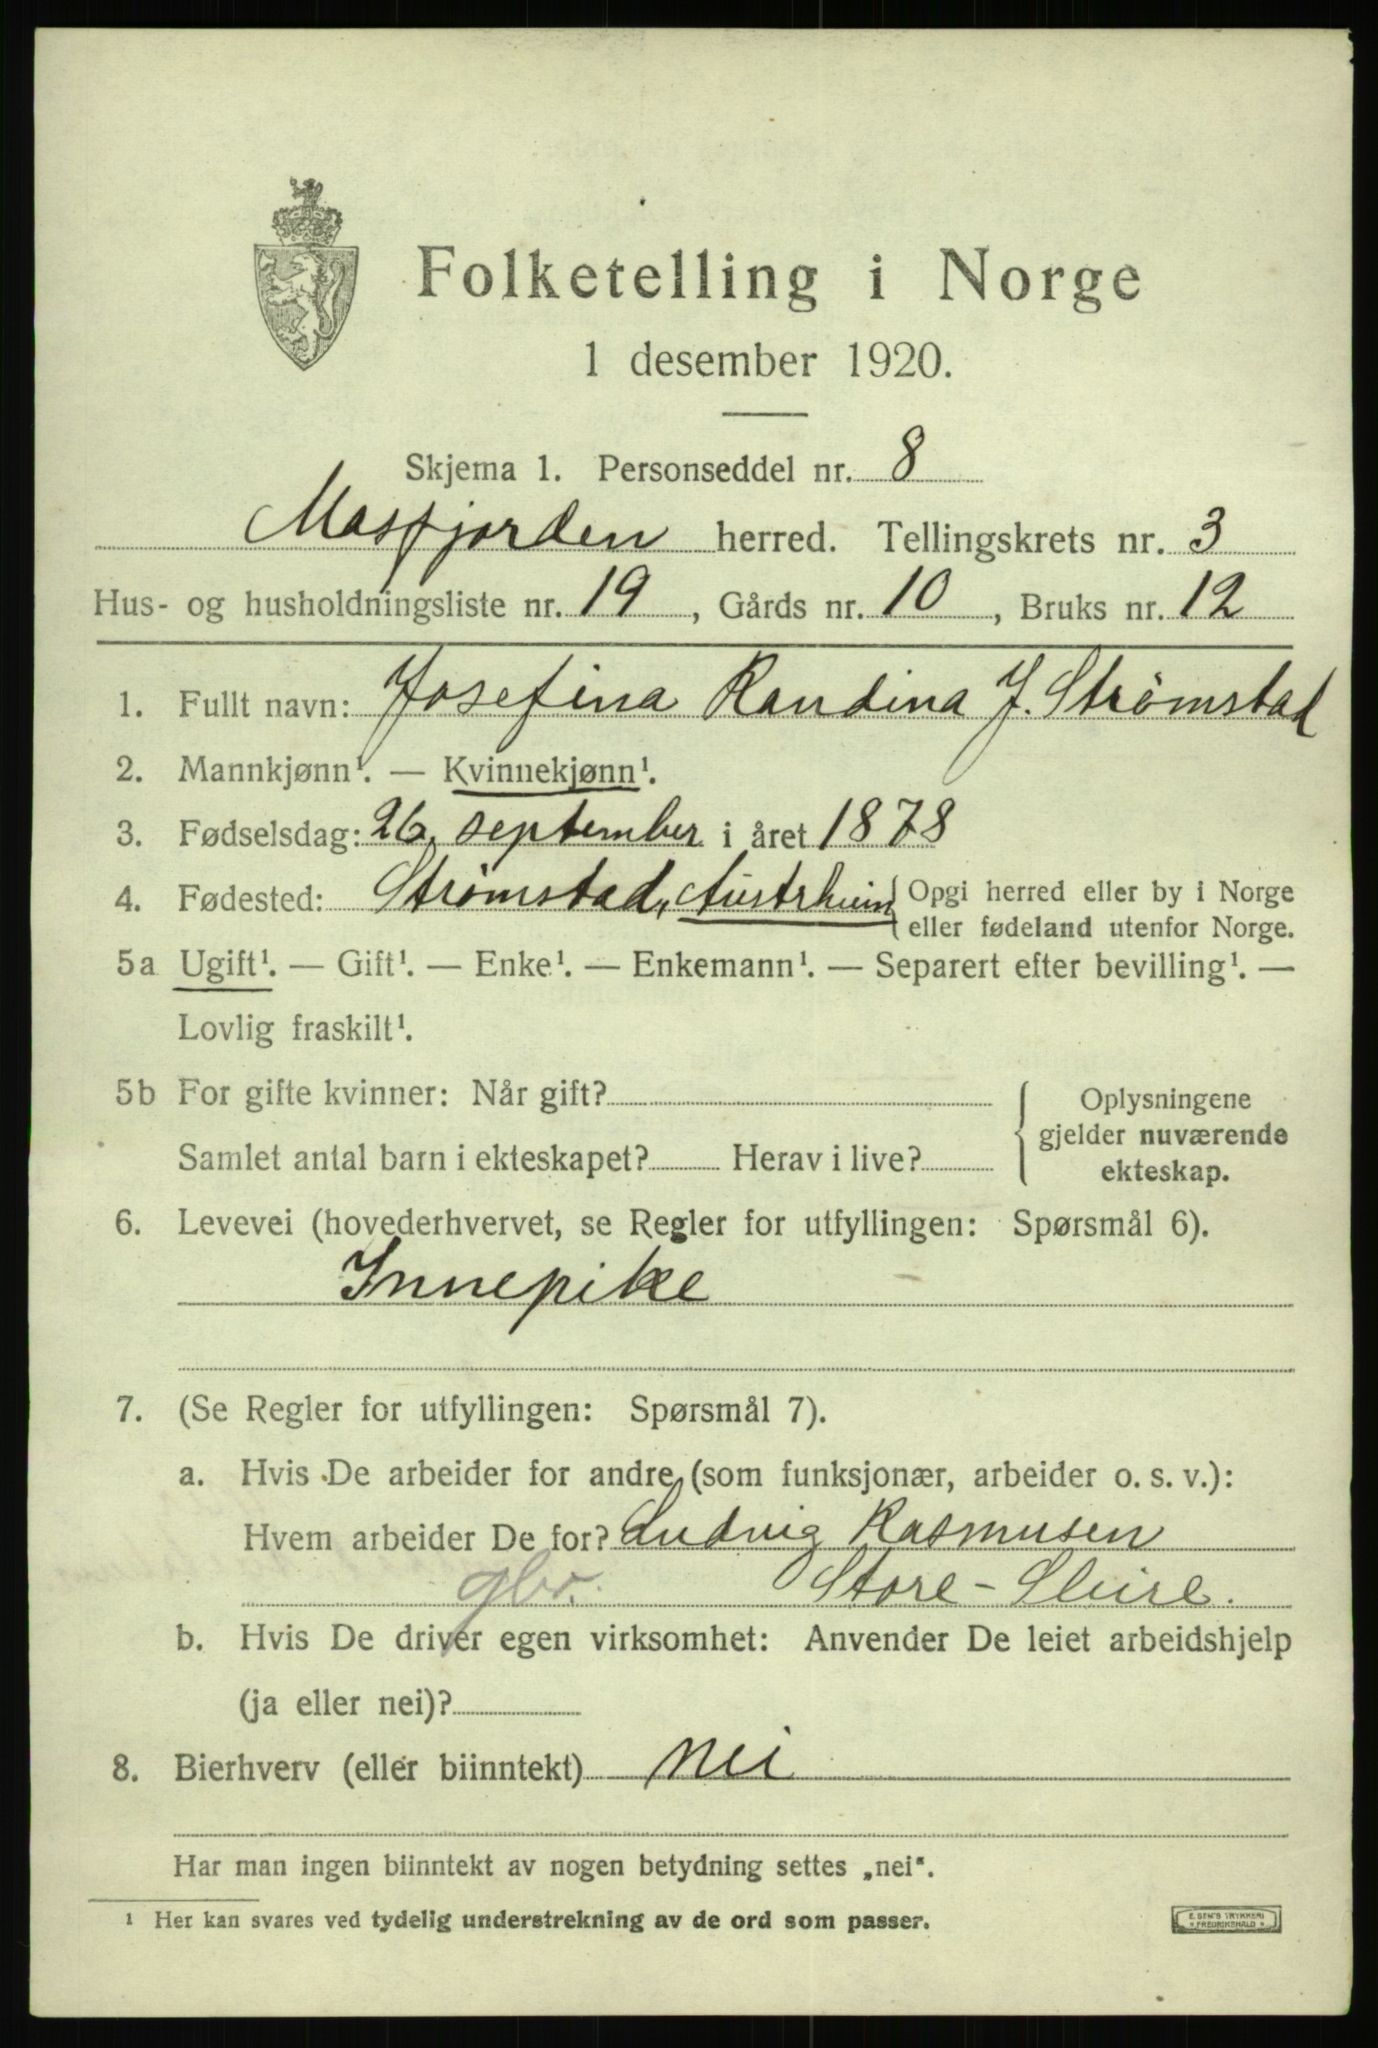 Folketelling i Norge
1 desember 1920.
Skjema 1. Personseddel nr. 8
Masfjorden herred. Tellingskrets nr. 3
Hus- og husholdningsliste nr. 19, Gårds nr. 10, Bruks nr. 12
1. Fullt navn: Josefina Randina J. Strømstad
2. Mannkjønn¹. — Kvinnekjønn¹.
3. Fødselsdag: 26. september i året 1878
4. Fødested: Strømstad, Austrheim { Opgi herred eller by i Norge
eller fødeland utenfor Norge.
5a Ugift¹. — Gift¹. — Enke¹. — Enkemann¹. — Separert efter bevilling¹. —
Lovlig fraskilt¹.
5b For gifte kvinner: Når gift?
Samlet antal barn i ekteskapet? Herav i live?
{ Oplysningene
gjelder nuværende
ekteskap.
6. Levevei (hovederhvervet, se Regler for utfyllingen: Spørsmål 6).
Innepike
7. (Se Regler for utfyllingen: Spørsmål 7).
a. Hvis De arbeider for andre (som funksjonær, arbeider o. s. v.):
Hvem arbeider De for? Ludvig Rasmusen
gbr. Store-
b. Hvis De driver egen virksomhet: Anvender De leiet arbeidshjelp
(ja eller nei)?
8. Bierhverv (eller biinntekt) nei
Har man ingen biinntekt av nogen betydning settes „nei".
¹ Her kan svares ved tydelig understrekning av de ord som passer.
E. SEM'S TRYKKERI
* FREDRIKSHALD *